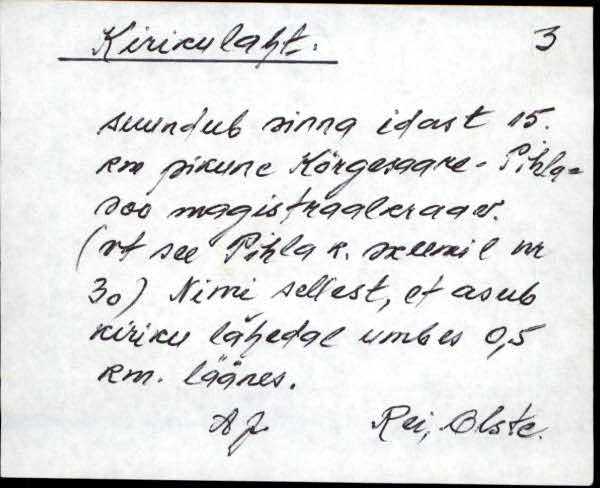 Kirikulaht. 3
suundub sinna idast 15.
km pikune Kõrgesaare-Pihla=
soo magistraalkraav.
(vt see Pihla k. skeemil nr
30) Nimi sellest, et asub
kiriku lähedal umbes 0,5
km. läänes.
Rei,